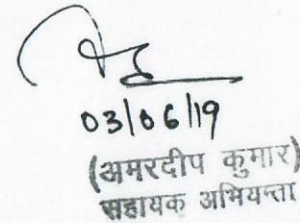 03/06/19
(अमरदीप कुमार)
सहायक अभियन्ता